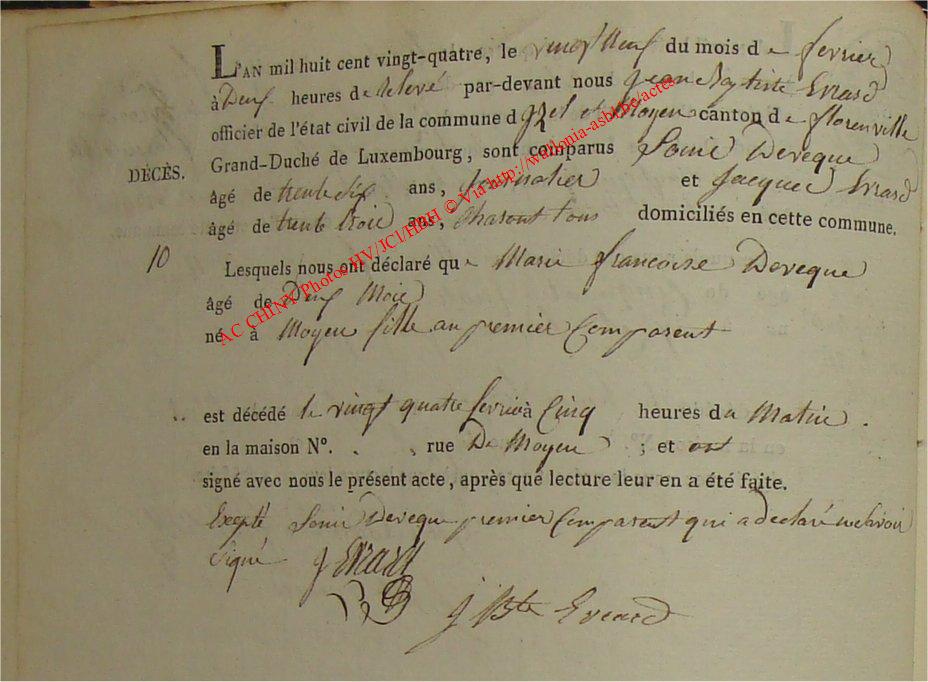 L'AN mil huit cent vingt-quatre, le vingt neuf du mois de fevrier
à Deux heures de Relevé par-devant nous Jean Baptiste Evrard
officier de l'état civil de la commune d'Izel et Moyen canton de florenville
Grand-Duché de Luxembourg, sont comparus Louis Deveque
DÉCÈS.
âgé de trente six ans, Journalier et Jacques Evrard
âgé de trente trois ans, domiciliés en cette commune.
10
Lesquels nous ont déclaré que Marie francoise Deveque
âgé de Deux Mois
né à Moyen fille au premier Comparent
est décédé le vingt quatre fevrier à Cinq heures du Matin.
en la maison N°. rue De Moyen ; et ont
signé avec nous le présent acte, après que lecture leur en a été faite.
Excepté Louis Deveque premier Comparent qui a declaré ne savoir
signé
J Evrard
J Bte Evrard
AC CHINY Photos HV/JCl/HbH © Via http://wallonia-asbl.be/actes